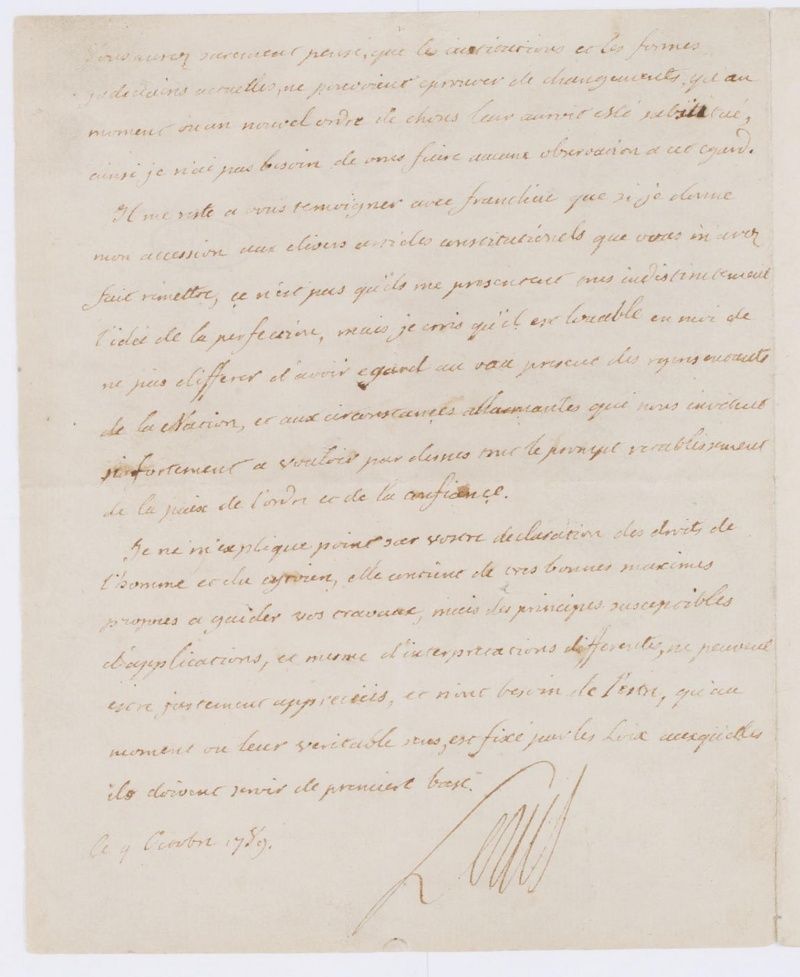 vous aurez surement pensé, que les institutions et les formes
judiciaires actuelles, ne pouvoient eprouver de changements, qu'au
moment ou un nouvel ordre de choses leur auroit esté substitué,
ainsi je n'ai pas besoin de vous faire aucune observation a cet egard.
Il me reste a vous temoigner avec franchise que si je donne
mon accession aux divers articles constitutionels que vous m'avez
fait remettre, ce n'est pas qu'ils me presentent tous indistinctement
l'idée de la perfection, mais je crois qu'il est louable en moi de
ne pas differer d'avoir egard au vœu present des representants
de la Nation, et aux circonstances allarmantes qui nous invitent
si fortement a vouloir par dessus tout le prompt retablissement
de la paix de l'ordre et de la confiance.
Je ne m'explique point sur vostre declaration des droits de
l'homme et du citoien, elle contient de tres bonnes maximes
propres a guider vos travaux, mais des principes susceptibles
d'applications, et mesme d'interpretations differentes, ne peuvent
estre justement appreciés, et n'ont besoin de l'estre, qu'au
moment ou leur veritable sens, est fixé par les Loix auxquelles
ils doivent servir de premiere base.
Ce Octobre 1789.
Louis